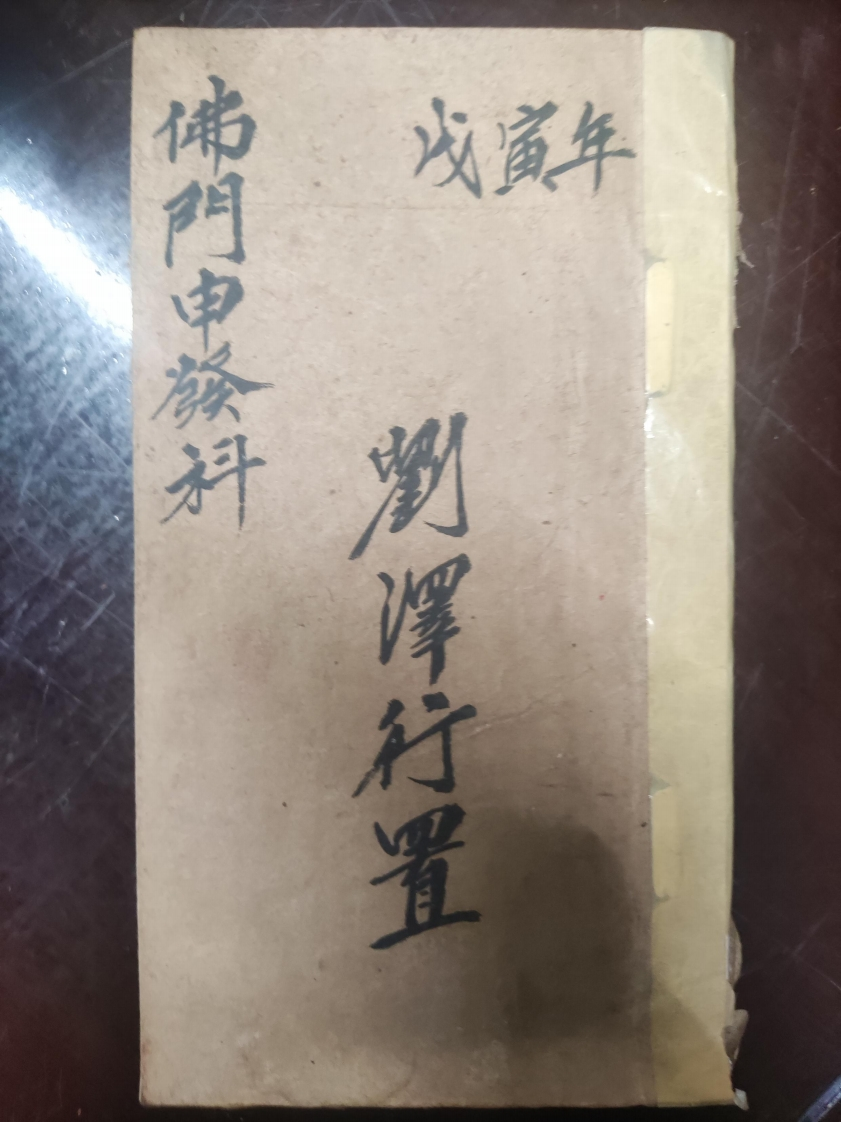 戊寅年
劉澤行置
佛門申發科